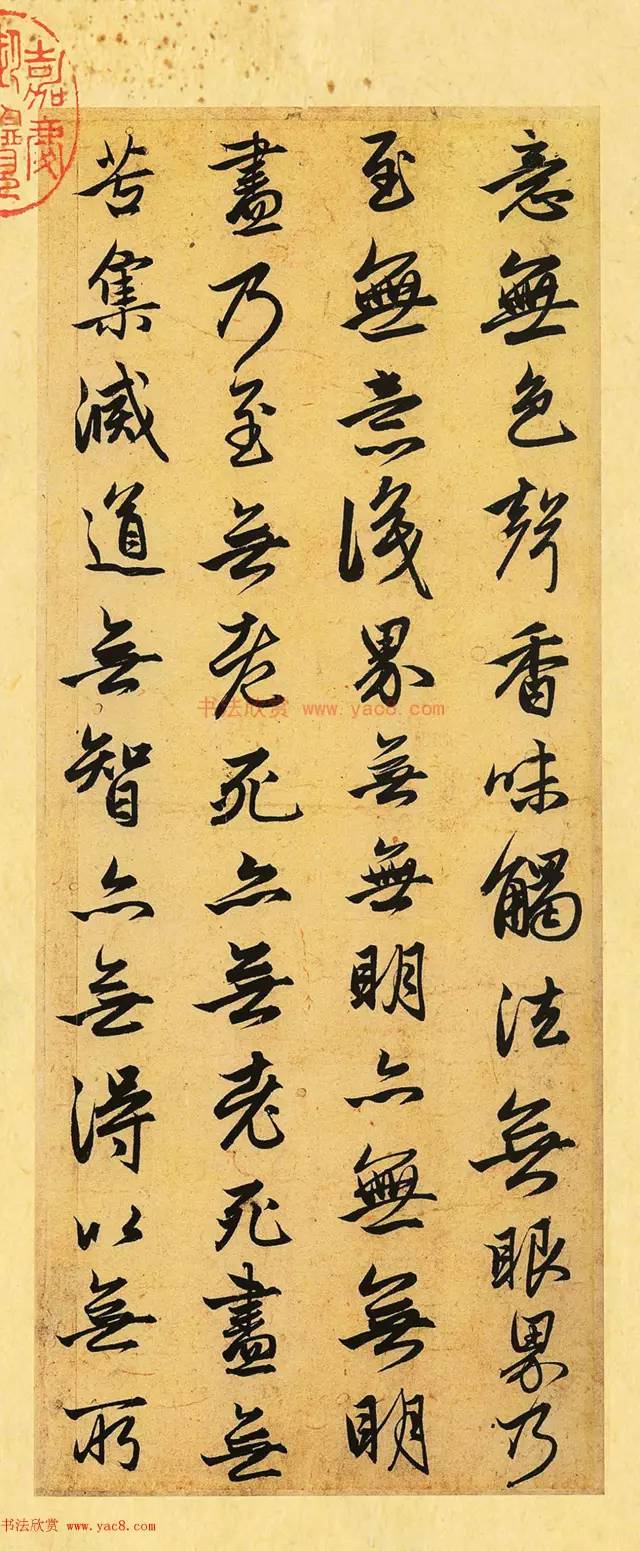 意無色聲香味觸法無眼界乃
至無意識界無無明亦無無明
盡乃至無老死亦無老死盡無
苦集滅道無智亦無得以無所
嘉慶
书法欣赏 www.yac8.com
书法欣赏 www.yac8.com